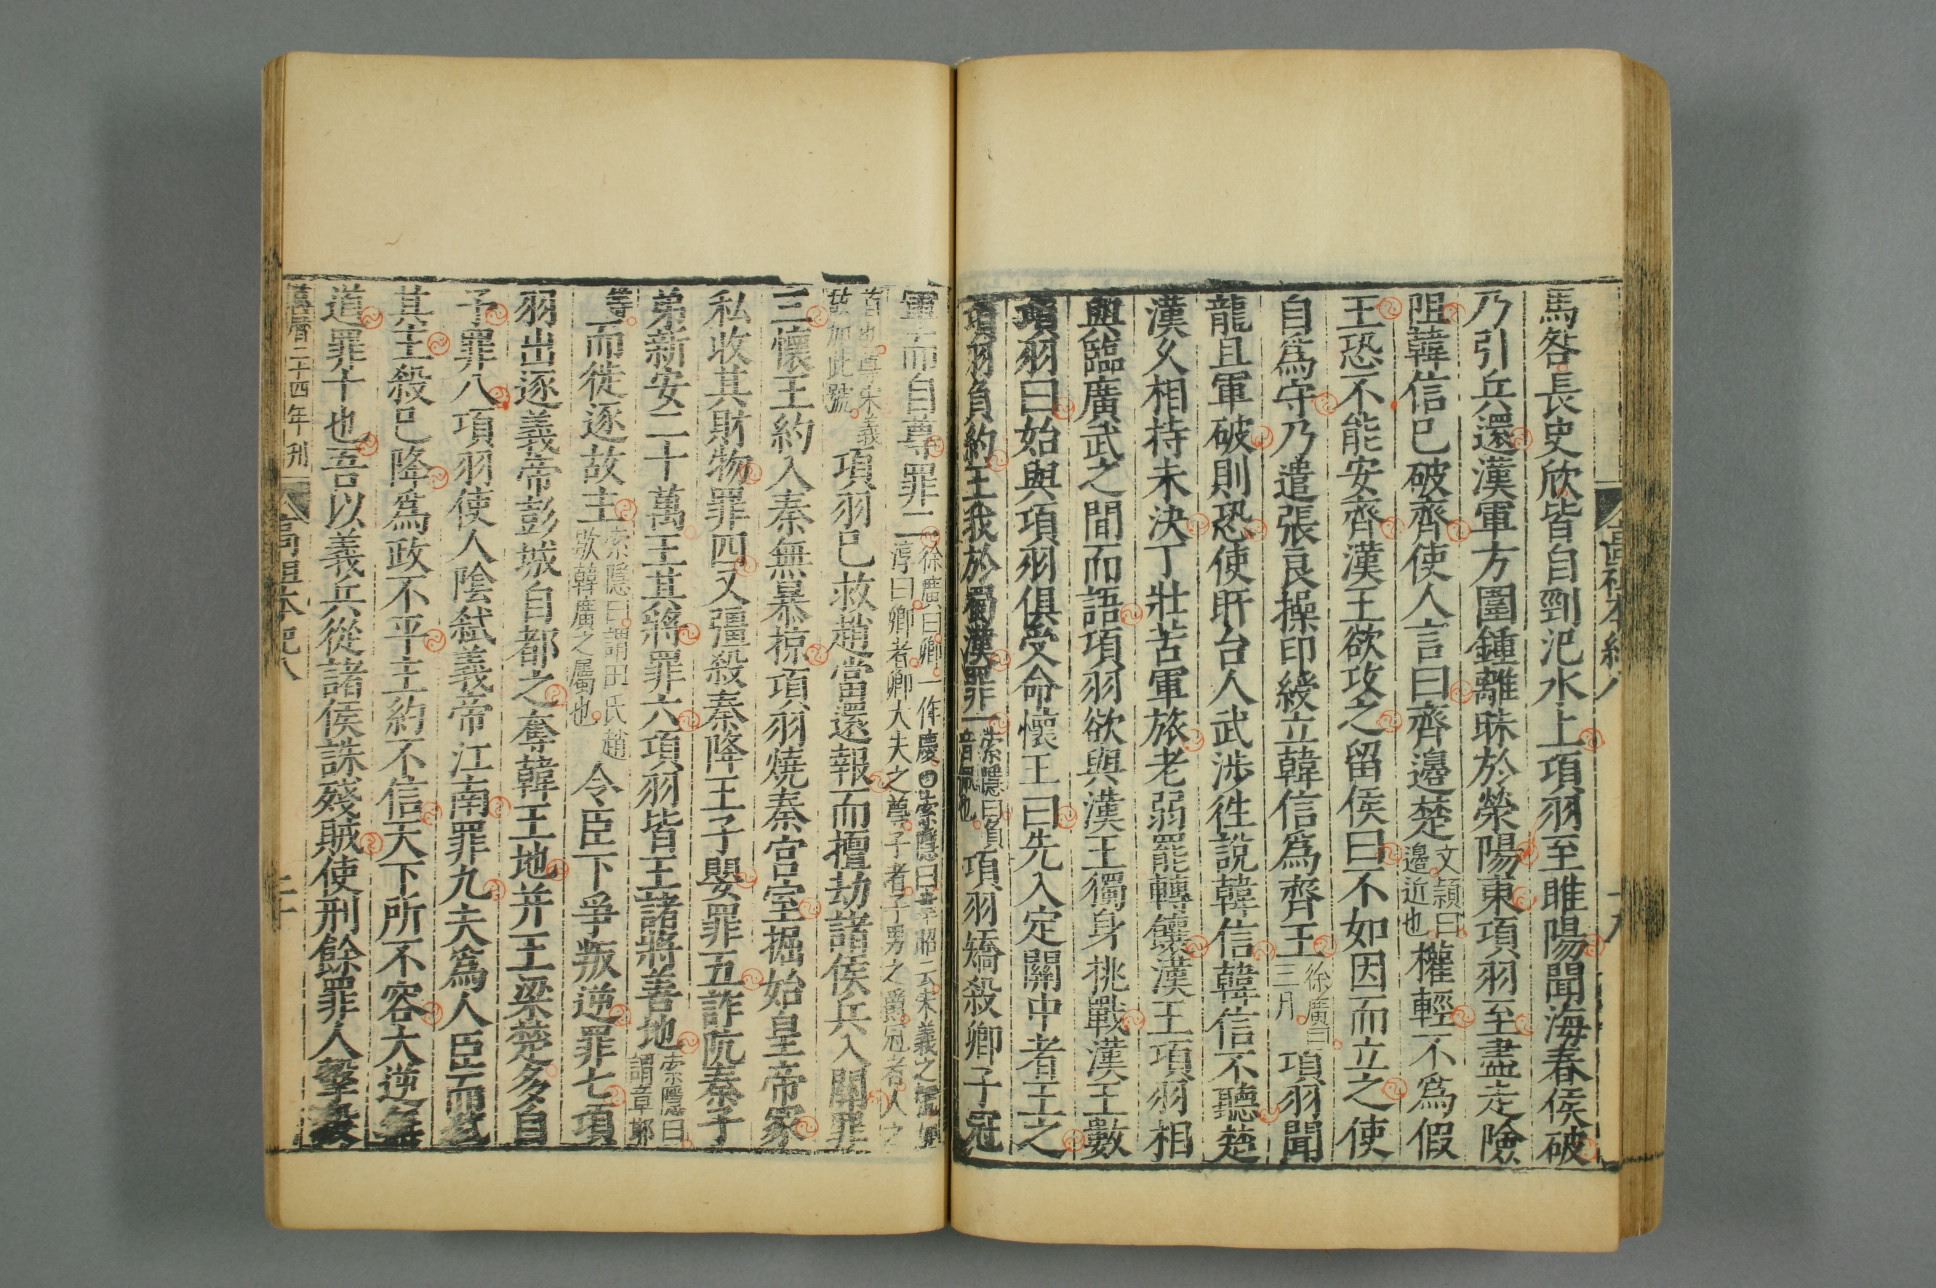 馬咎長史欣皆自剄汜水上項羽至睢陽聞海春侯破
乃引兵還漢軍方圍鍾離眛於滎陽東項羽至盡走險
阻韓信已破齊使人言曰齊邊楚文頴曰邊近也權輕不為假
王恐不能安齊漢王欲攻之留侯曰不如因而立之使
自為守乃遣張良操印綬立韓信為齊王徐廣曰三月項羽聞
龍且軍破則恐使盱台人武涉往說韓信韓信不聽楚
漢久相持未決丁壯苦軍旅老弱罷轉饟漢王項羽相
與臨廣武之間而語項羽欲與漢王獨身挑戰漢王數
項羽曰始與項羽俱受命懷王曰先入定關中者王之
項羽負約王我於蜀漢罪一索隱曰負音佩也項羽矯殺卿子冠
軍而自尊罪二徐廣曰卿一作慶索隱曰韋昭云宋義之號如淳曰卿者卿大夫之尊子者子男之爵冠者人之
首也尊宋義故加此號項羽已救趙當還報而擅劫諸侯兵入關罪
三懷王約入秦無暴掠項羽燒秦宮室掘始皇帝冢
私收其財物罪四又彊殺秦降王子嬰罪五詐阬秦子
弟新安二十萬王其將罪六項羽皆王諸將善地索隱曰謂章邯
等而徙逐故主索隱曰謂田氏趙歇韓廣之屬也令臣下爭叛逆罪七項
羽出逐義帝彭城自都之奪韓王地并王梁楚多自
予罪八項羽使人陰弒義帝江南罪九夫為人臣而弒
其主殺已降為政不平主約不信天下所不容大逆無
道罪十也吾以義兵從諸侯誅殘賊使刑餘罪人擊殺
萬曆二十四年刊 高祖本紀八 二十